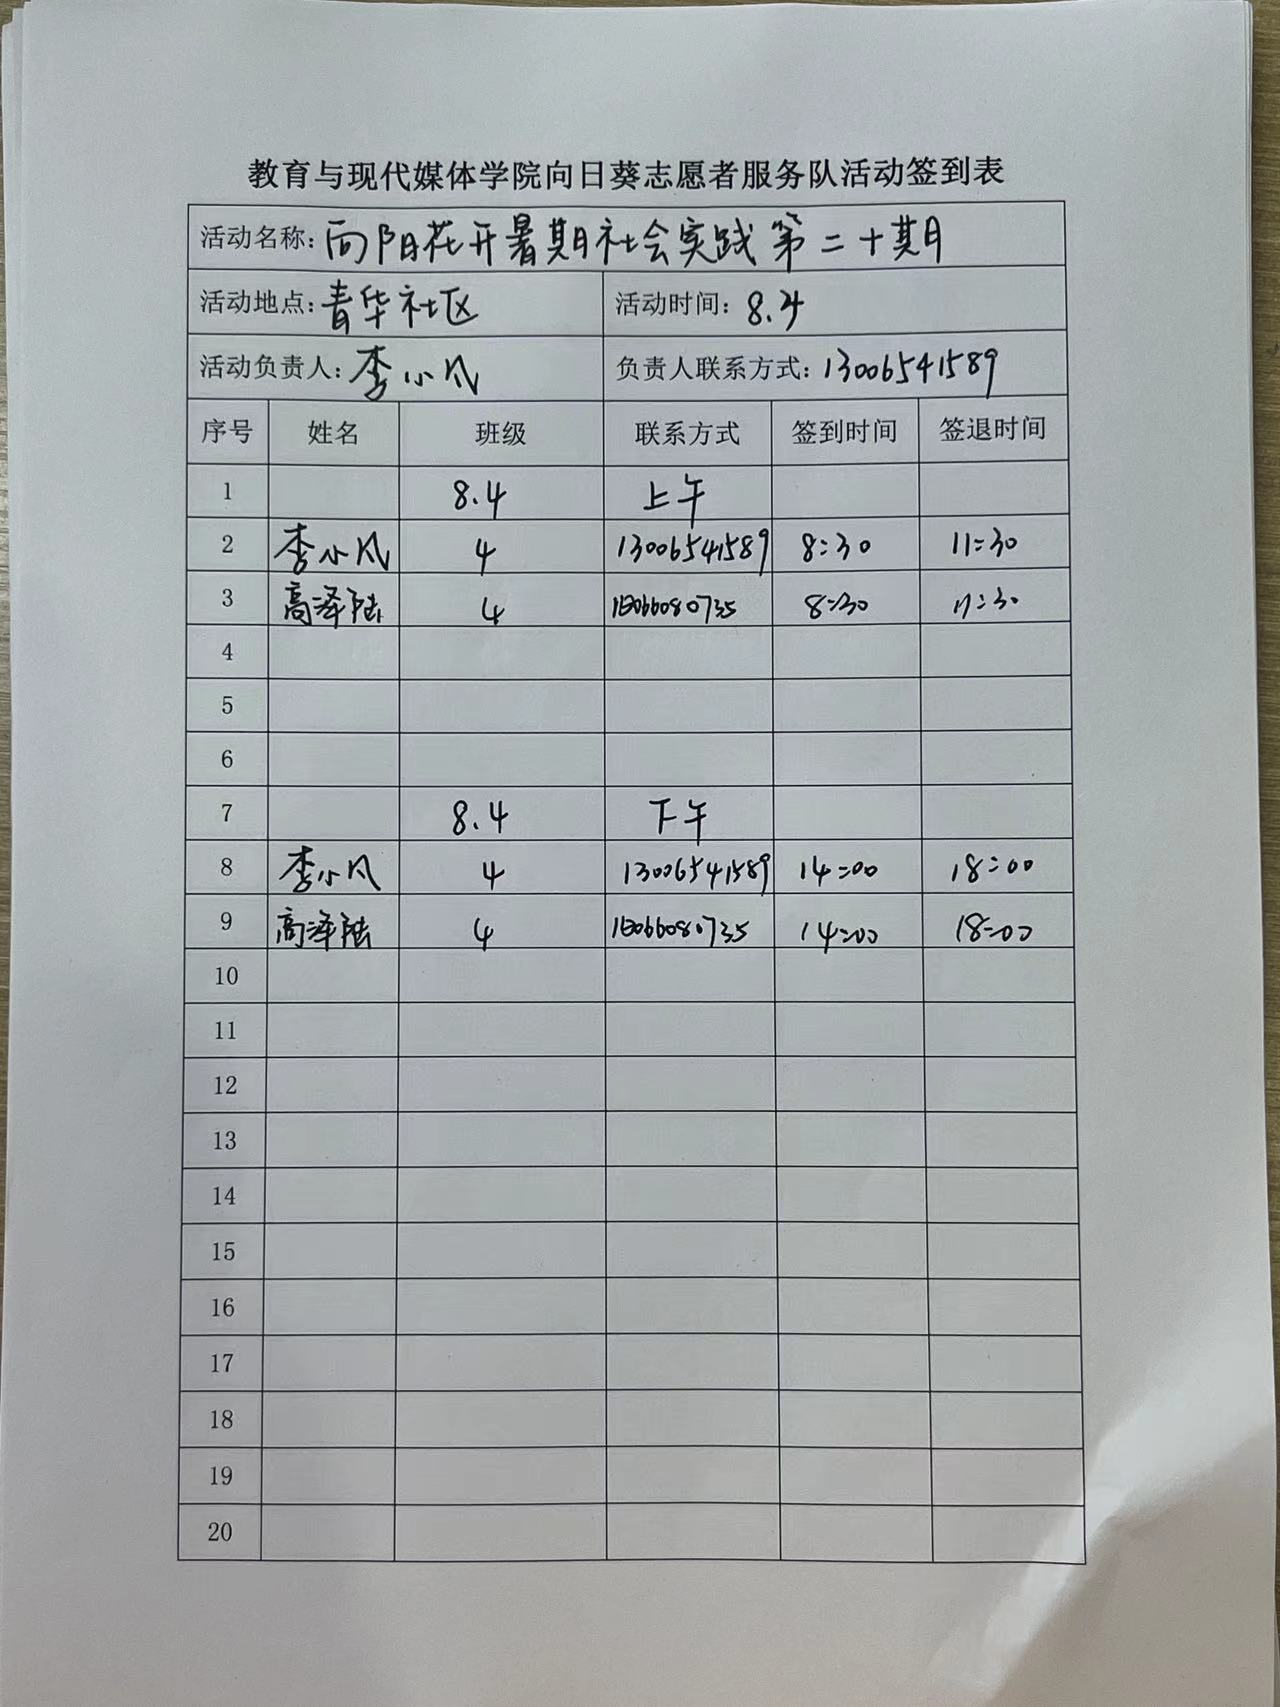 教育与现代媒体学院向日葵志愿者服务队活动签到表
活动名称: 向阳花开暑期社会实践第二十期
活动地点: 青华社区 活动时间: 8.4
活动负责人: 李小凡 负责人联系方式: 13006541589
序号 姓名 班级 联系方式 签到时间 签退时间
1 8.4 上午
2 李小凡 4 13006541589 8:30 11:30
3 高泽陆 4 8:30 11:30
4
5
6
7 8.4 下午
8 李小凡 4 13006541589 14:00 18:00
9 高泽陆 4 14:00 18:00
10
11
12
13
14
15
16
17
18
19
20